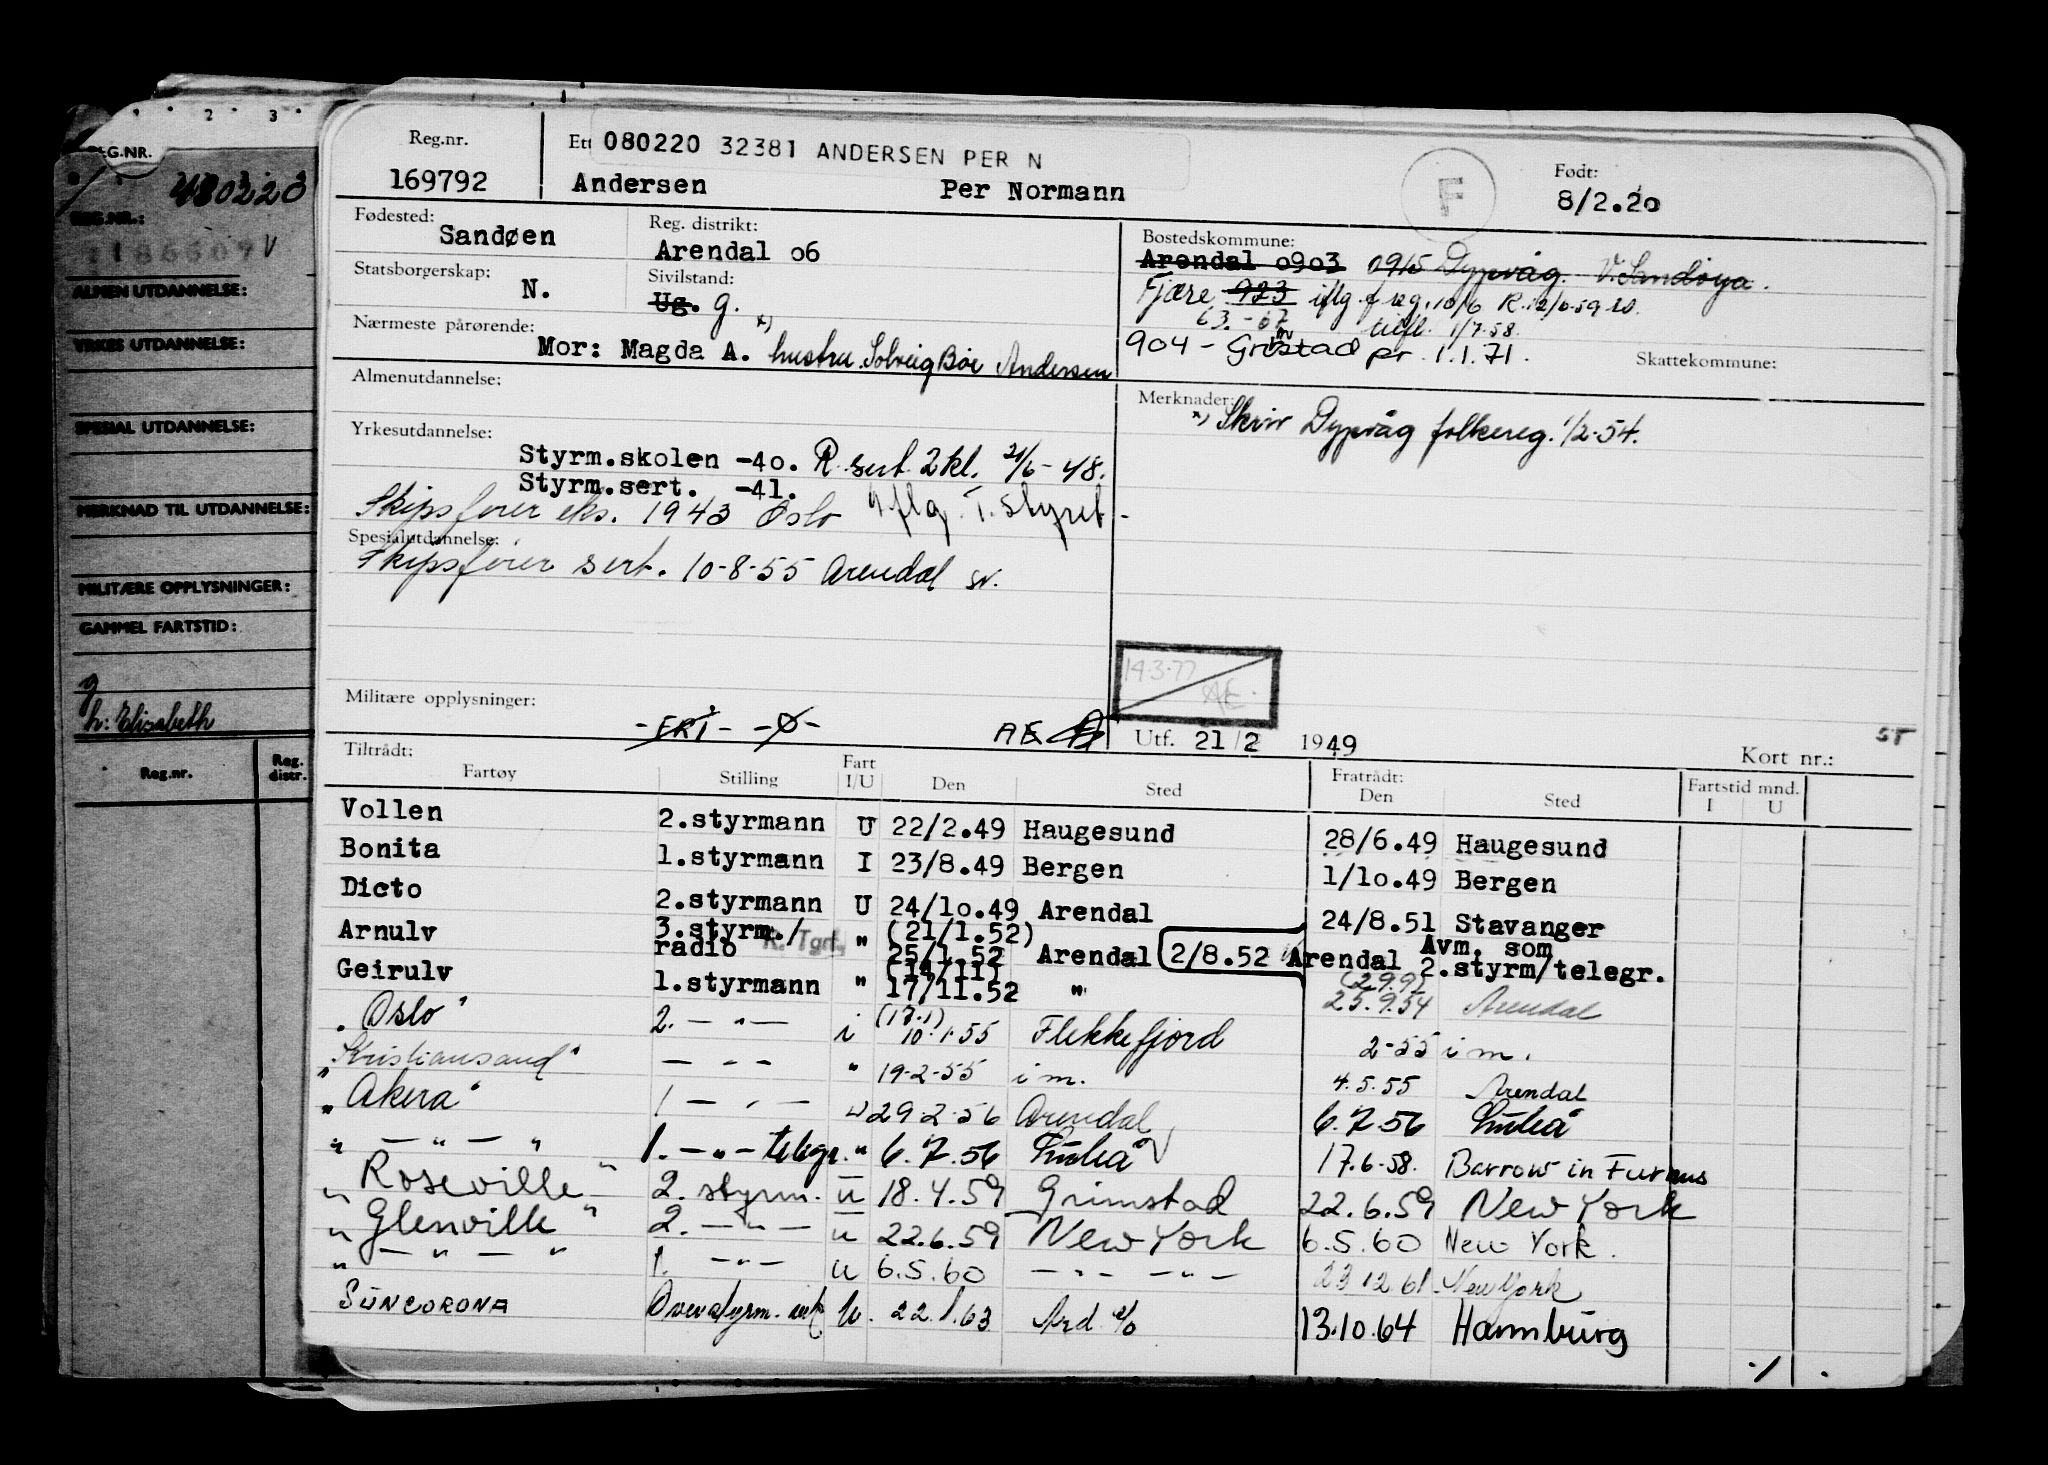 2 3
REG.NR.
480220
REG.NR.:
186609 V
ALMEN UTDANNELSE:
YRKES UTDANNELSE:
SPESIAL UTDANNELSE:
MERKNAD TIL UTDANNELSE:
MILITÆRE OPPLYSNINGER:
GAMMEL FARTSTID:
g
h: Elisabeth
Reg.nr. Reg. distr.
Reg.nr. Ett 080220 32381 ANDERSEN PER N F Født:
169792 Andersen Per Normann 8/2.20
Fødested: Sandøen Reg. distrikt: Arendal o6 Bostedskommune:
Arendal o903 0915 Dypvåg. V. Sandøya.
Statsborgerskap: N. Sivilstand: Ug. g.
Fjære 923 iflg. f.reg. 10/6
63.-67 tilfl. 1/7-58.
904 - Grimstad pr. 1.1.71. Skattekommune:
Nærmeste pårørende: Mor: Magda A. x) hustru Solveig Bøe Andersen
Almenutdannelse:
Merknader: x) Skriv Dypvåg folkereg. 1/2-54.
Yrkesutdannelse:
Styrm.skolen -4o. R. sert. 2 kl. 21/6-48.
Styrm.sert. -41.
Skipsfører eks. 1943 Oslo iflg. T. Styret.
Spesialutdannelse:
Skipsfører sert. 10-8-55 Arendal sv.
14-3-77 AE.
Militære opplysninger: -FRI- -Ø- AE
Utf. 21/2 1949 Kort nr.: ST
Tiltrådt: Fartøy Stilling Fart I/U Den Sted Fratrådt: Den Sted Fartstid mnd. I U
Vollen 2.styrmann U 22/2.49 Haugesund 28/6.49 Haugesund
Bonita 1.styrmann I 23/8.49 Bergen 1/1o.49 Bergen
Dicto 2.styrmann U 24/1o.49 Arendal 24/8.51 Stavanger
Arnulv 3.styrm./ radio R. Tgrf. " (21/1.52) 25/1.52 Arendal 2/8.52 Arendal Avm. som 2.styrm/telegr.
Geirulv 1.styrmann " (14/11) 17/11.52 " (29.9) 25.9.54 Arendal
"Oslo" 2. — " — i (13.1) 10.1.55 Flekkefjord 2-55 i m.
"Kristiansand" — " — " 19-2-55 i m. 4.5.55 Arendal
"Akera" 1 — " — u 29-2-56 Arendal 6.7.56 Luleå
" — " — " 1. — " — telegr. " 6.7.56 Luleå 17.6-58. Barrow in Furnus
"Roseville" 2. styrm. u 18.4.59 Grimstad 22.6.59 New York
"Glenville" 2. — " — u 22.6.59 New York 6.5.60 New York.
" — " — " 1. — " — u 6.5.60 — " — — " — 23 12 61 New York
SUNCORONA Overstyrm. u. 22.1.63 Ard 13.10.64 Hamburg